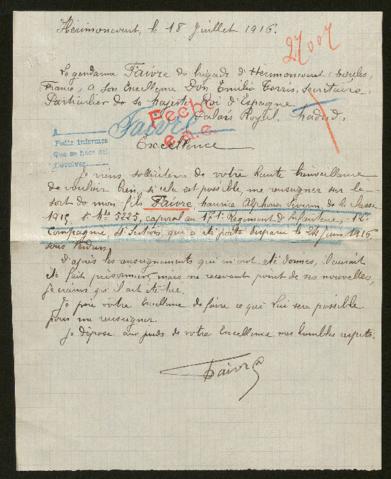 Hérimoncourt, le 18 Juillet 1916.
27007
Le gendarme Faivre de brigade d'Hérimoncourt (Doubs,
France, à son Excellence Don Emilio Torrès, Secrétaire
Particulier de Sa Majesté Roi d'Espagne
Palais Royal. Madrid.
Faivre
Excellence
Je viens solliciter de votre haute bienveillance
de vouloir bien, si cela est possible, me renseigner sur le
sort de mon fils Faivre Maurice Alphonse Séverin de la classe
1915 Mle 5225, caporal au 171e Régiment d'infanterie, 12e
Compagnie 4e Section qui a été porté disparu le 24 juin 1916
sous Verdun.
D'après les renseignements qui m'ont été donnés, il aurait
été fait prisonnier, mais ne recevant point de ses nouvelles,
je crains qu'il ait été tué.
Je prie votre Excellence de faire ce qui lui sera possible
pour me renseigner.
Je dépose aux pieds de votre Excellence mes humbles respects.
Faivre